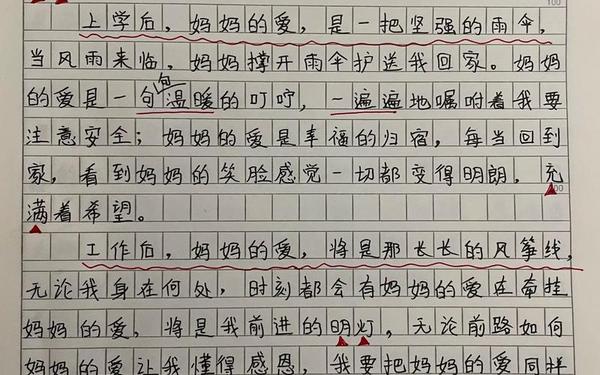 上学后，妈妈的爱，是一把坚强的雨伞，
当风雨来临，妈妈撑开雨伞护送我回家。妈妈
的爱是一句句温暖的叮咛，一遍遍地嘱咐着我要
注意安全；妈妈的爱是幸福的归宿，每当回到
家，看到妈妈的笑脸感觉一切都变得明朗，充
满着希望。
工作后，妈妈的爱，将是那长长的风筝线，
无论我身在何处，时刻都会有妈妈的爱在牵挂
妈妈的爱，将是我前进的明灯，无论前路如何
妈妈的爱让我懂得感恩，我要把妈妈的爱同样